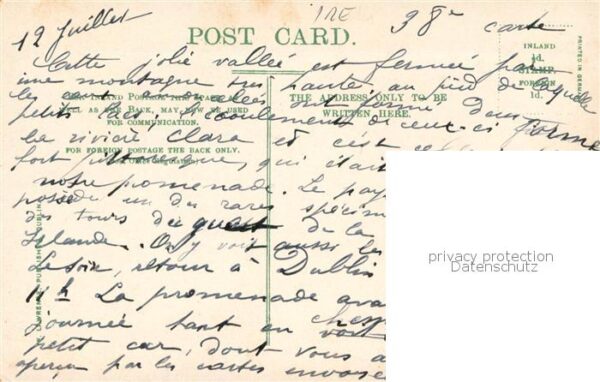 12 Juillet
IRE
38e carte
POST CARD.
INLAND
½d.
STAMP.
FOREIGN
1d.
PRINTED IN
Cette jolie vallée est fermée par
une montagne haute au pied de laquelle
les ont formé deux
petits lacs; l'écoulement de ceux-ci forme
FOR INLAND POSTAGE THIS SPACE AS
WELL AS THE BACK, MAY NOW BE USED
FOR COMMUNICATION.
FOR FOREIGN POSTAGE THE BACK ONLY.
THE ADDRESS ONLY TO BE
WRITTEN HERE.
La rivière Clara et c'est
fort pittoresque, qui était
notre promenade. Le pay
possède un des rares spécim
des tours de guet de la
Irlande. On y voit aussi les
Le soir, retour à Dublin
11h La promenade ava
journée tant en
petit car, dont vous a
aperçu par les cartes envoyé
LAWRENCE, PUBLISHER, DUBLIN
privacy protection
Datenschutz